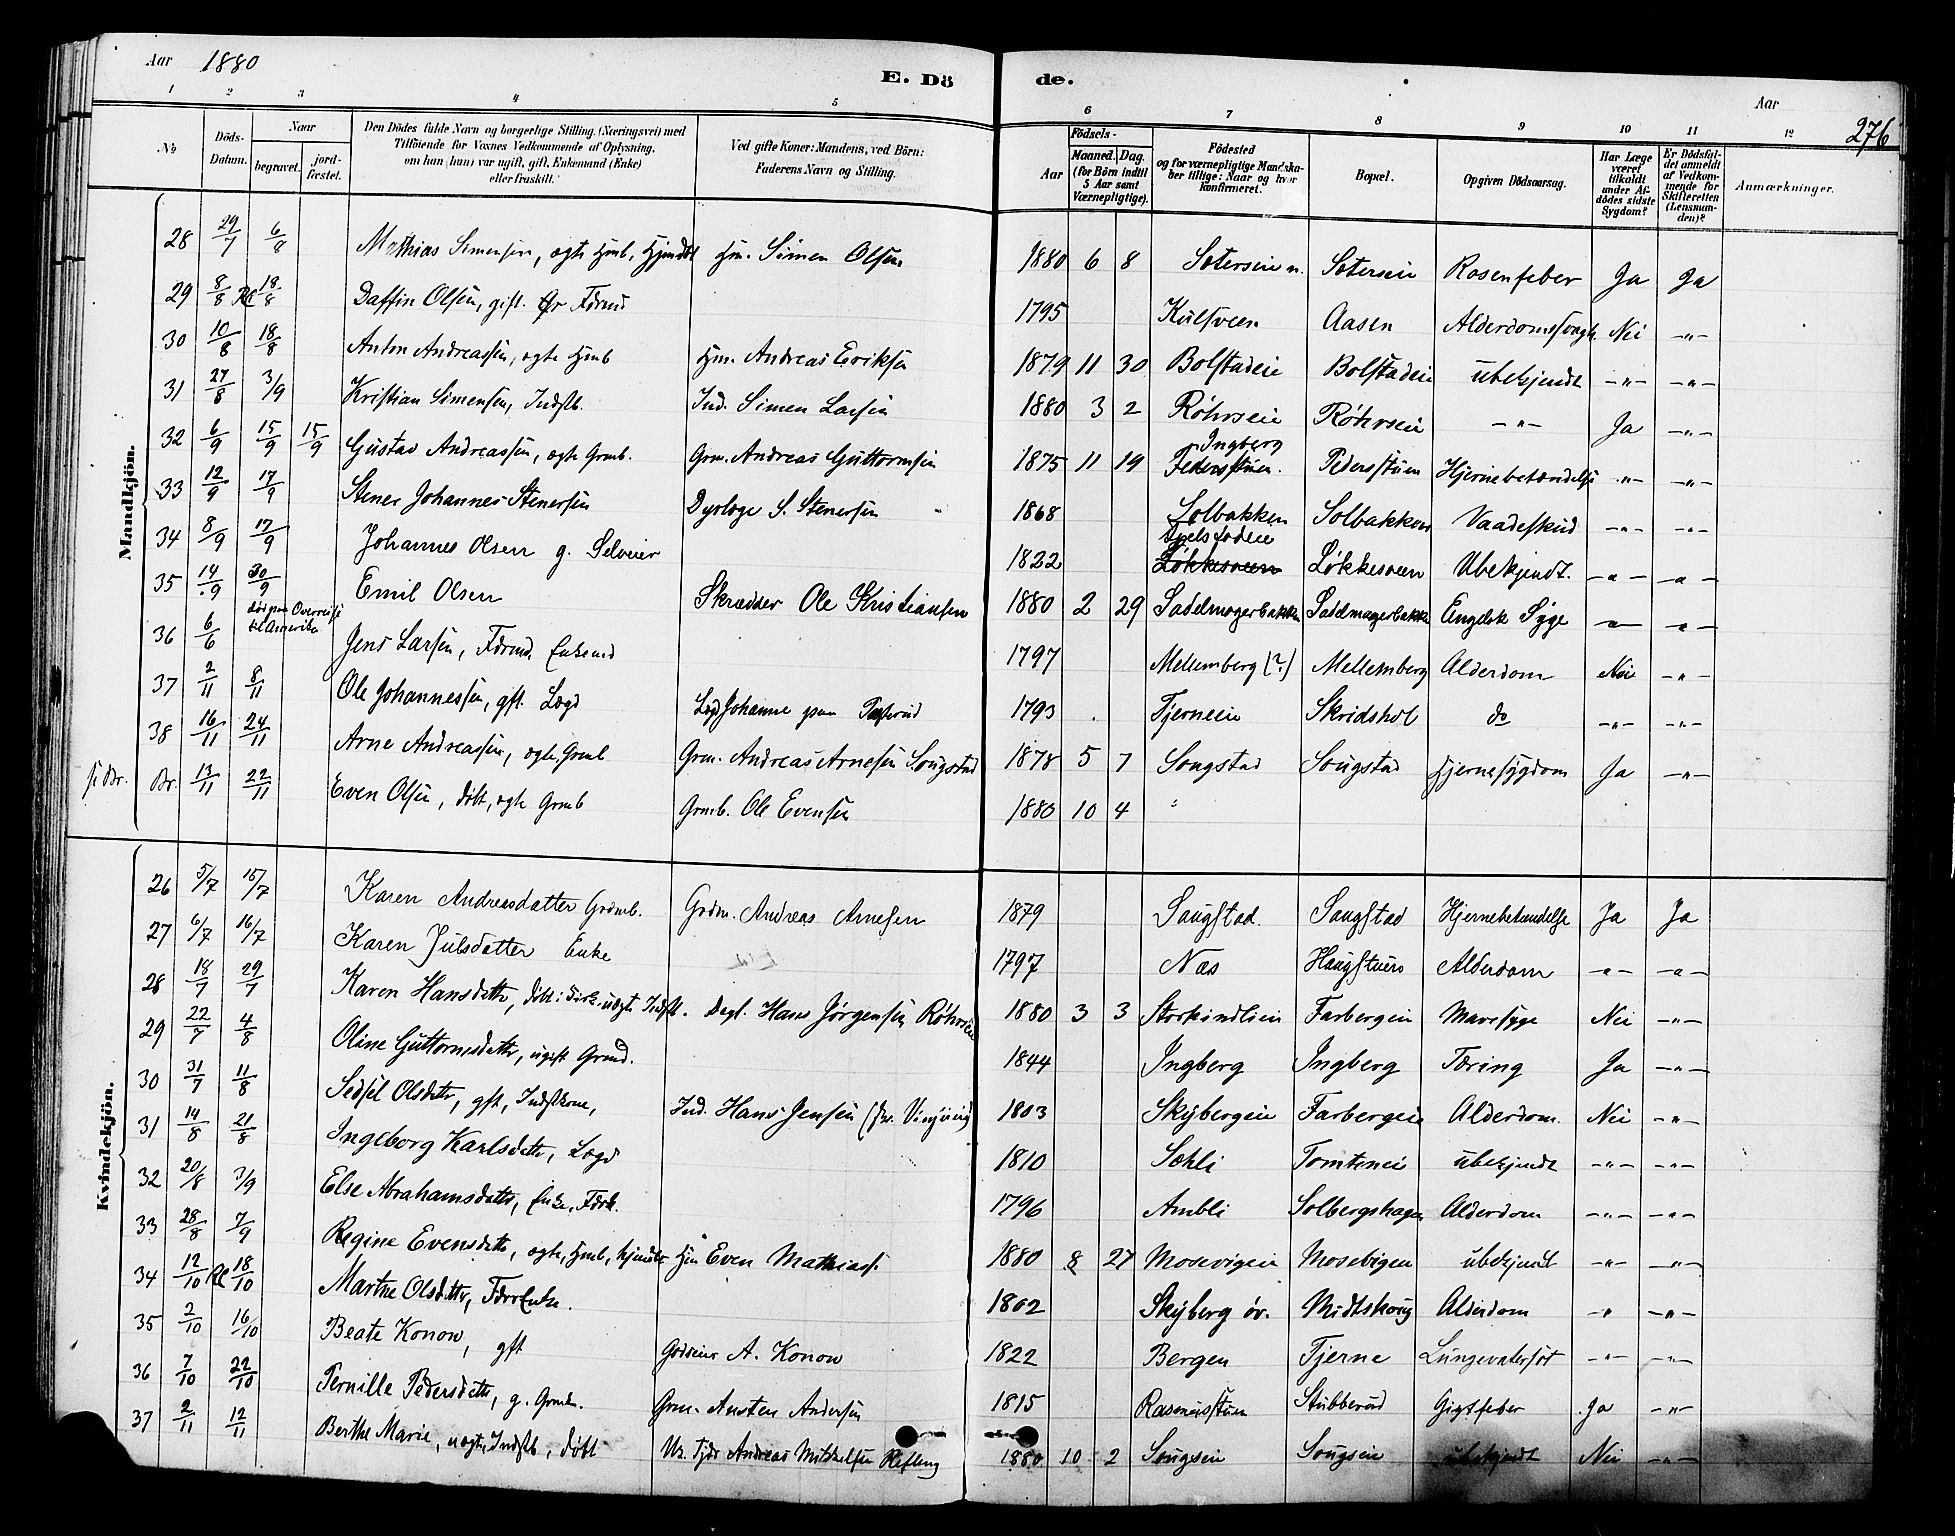 Aar 1880 E. Dö de. Aar 276
1 2 3 4 5 6 7 8 9 10 11 12
No. Döds-Datum. Naar begravet. jordfæstet. Den Dödes fulde Navn og borgerlige Stilling (Næringsvei) med Tilföiende for Voxnes Vedkommende af Oplysning, om han (hun) var ugift, gift, Enkemand (Enke) eller fraskilt. Ved gifte Koner: Mandens, ved Börn: Faderens Navn og Stilling. Födsels- Aar Maaned. Dag. (for Börn indtil 5 Aar samt Værnepligtige). Födested og for værnepligtige Mandskaber tillige: Naar og hvor konfirmeret. Bopæl. Opgiven Dödsaarsag. Har Læge været tilkaldt under Afdödes sidste Sygdom? Er Dödsfaldet anmeldt af Vedkommende for Skifteretten (Lensmanden)? Anmærkninger.
Mandkjön.
28 29/7 6/8 Mathias Simensen, ægte Hmb, Hjemdöbt Hm. Simen Olsen 1880 6 8 Sæterseie n. Sæterseie Rosenfeber Ja Ja
29 8/8 18/8 Daffin Olsen, gift. Fdrmd 1795 Kulsveen Aasen Alderdomssvagh. Nei -"-
30 10/8 18/8 Anton Andreassen, ægte Hmb Hm. Andreas Eriksen 1879 11 30 Bolstadeie Bolstadeie ubekjendt -"- -"-
31 27/8 3/9 Kristian Simensen, Indstb. Ind. Simen Larsen 1880 3 2 Röhrseie Röhrseie -"- Ja -"-
32 6/9 15/9 15/9 Gustav Andreassen, ægte Grmb. Grm. Andreas Guttormsen 1875 11 19 Ingberg Pedersstuen. Pedersstuen Hjernebetændelse -"- -"-
33 12/9 17/9 Stener Johannes Stenersen Dyrlæge S. Stenersen 1868 Solbakken Solbakken Vaadeskud -"- -"-
34 8/9 17/9 Johannes Olsen g. Selveier 1822 Løkkesveen Løkkesveen Ubekjendt. -"- -"-
35 14/9 30/9 Emil Olsen Skrædder Ole Kristiansen 1880 2 29 Sadelmagerbakken Sadelmagerbakken Engelsk Syge -"- -"-
36 6/6 död paa Overreise til Amerika Jens Larsen, Fdrmd. Enkemd 1797 Mellemberg (?) Mellemberg Alderdom Nei -"-
37 2/11 8/11 Ole Johannessen, gft. Lægd 1793 Tjerneie Skridshol do -"- -"-
38 16/11 24/11 Arne Andreassen, ægte, Grmb Grm. Andreas Arnesen Sougstad 1878 5 7 Sougstad Sougstad Hjernesygdom Ja -"-
Br. 13/11 22/11 Even Olsen, döbt, ægte Grmb Grmb. Ole Evensen 1880 10 4 "
Kvindekjön.
26 5/7 15/7 Karen Andreasdatter Grdmb. Grdm. Andreas Arnesen 1879 Saugstad. Saugstad Hjernebetændelse Ja Ja
27 6/7 16/7 Karen Julsdatter Enke 1797 Næs Haugstuen Alderdom -"- -"-
28 18/7 29/7 Karen Hansdatter, döbt i Kirk. uægte Indstb. Dagl. Hans Jørgensen Röhrseie 1880 3 3 Storkindlien Farbergeie Mavesyge Nei -"-
29 22/7 4/8 Oline Guttormsdatter, ugift Grmd. 1844 Ingberg Ingberg Tæring Ja -"-
30 31/7 11/8 Sedsel Olsdatter, gft, Indstkone, Ind. Hans Jensen 1803 Skybergeie Farbergeie Alderdom. Nei -"-
31 14/8 21/8 Ingeborg Karlsdatter, Lægd 1810 Sæhli Tomteneie ubekjendt -"- -"-
32 20/8 3/9 Else Abrahamsdatter, Enke, Fdrk. 1796 Ambli Solbergshagen Alderdom -"- -"-
33 28/8 7/9 Regine Evensdatter, ægte, Hmb, hjemdöbt Hm Even Mathiass. 1880 8 27 Mosevigeie Mosevigen ubekjendt -"- -"-
34 12/10 18/10 Marthe Olsdatter, FdrrEnke. 1802 Skyberg öv. Midtskoug Alderdom -"- -"-
35 2/10 16/10 Beate Konow, gft Godseier A. Konow 1822 Bergen Tjerne Lungevatersot -"- -"-
36 7/10 22/10 Pernille Pedersdatter, g. Grmk. Grm. Austen Andersen 1815 Rasmusstuen Stubberud Gigtfeber Ja -"-
37 2/11 12/11 Berthe Marie, uægte, Indstb, döbt Andreas Mikkelsen Refling 1880 10 2 Sougseie Sougseie ubekjendt Nei -"-